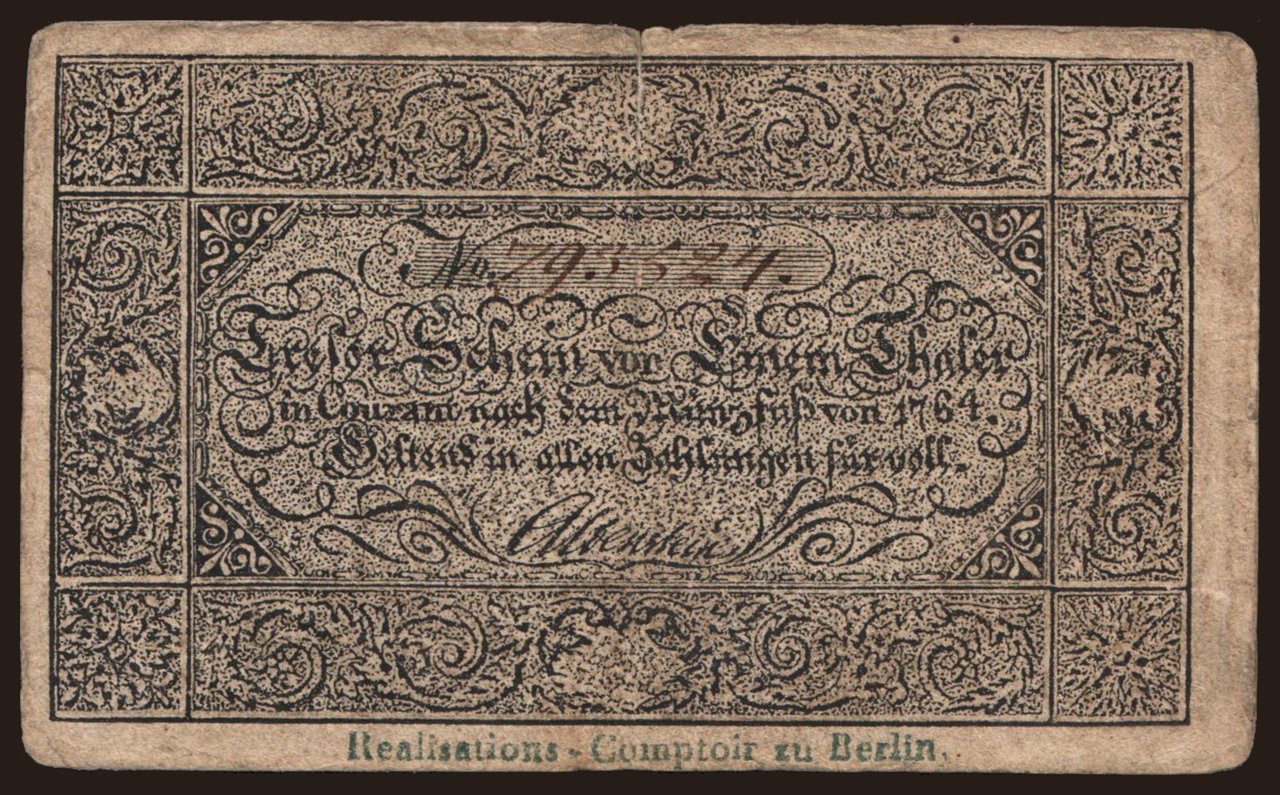 No. 795524.
Tresor-Schein vor Einem Thaler
in Courant nach dem Münzfuß von 1764.
Geltend in allen Zahlungen für voll.
Altenstein
Realisations-Comptoir zu Berlin.